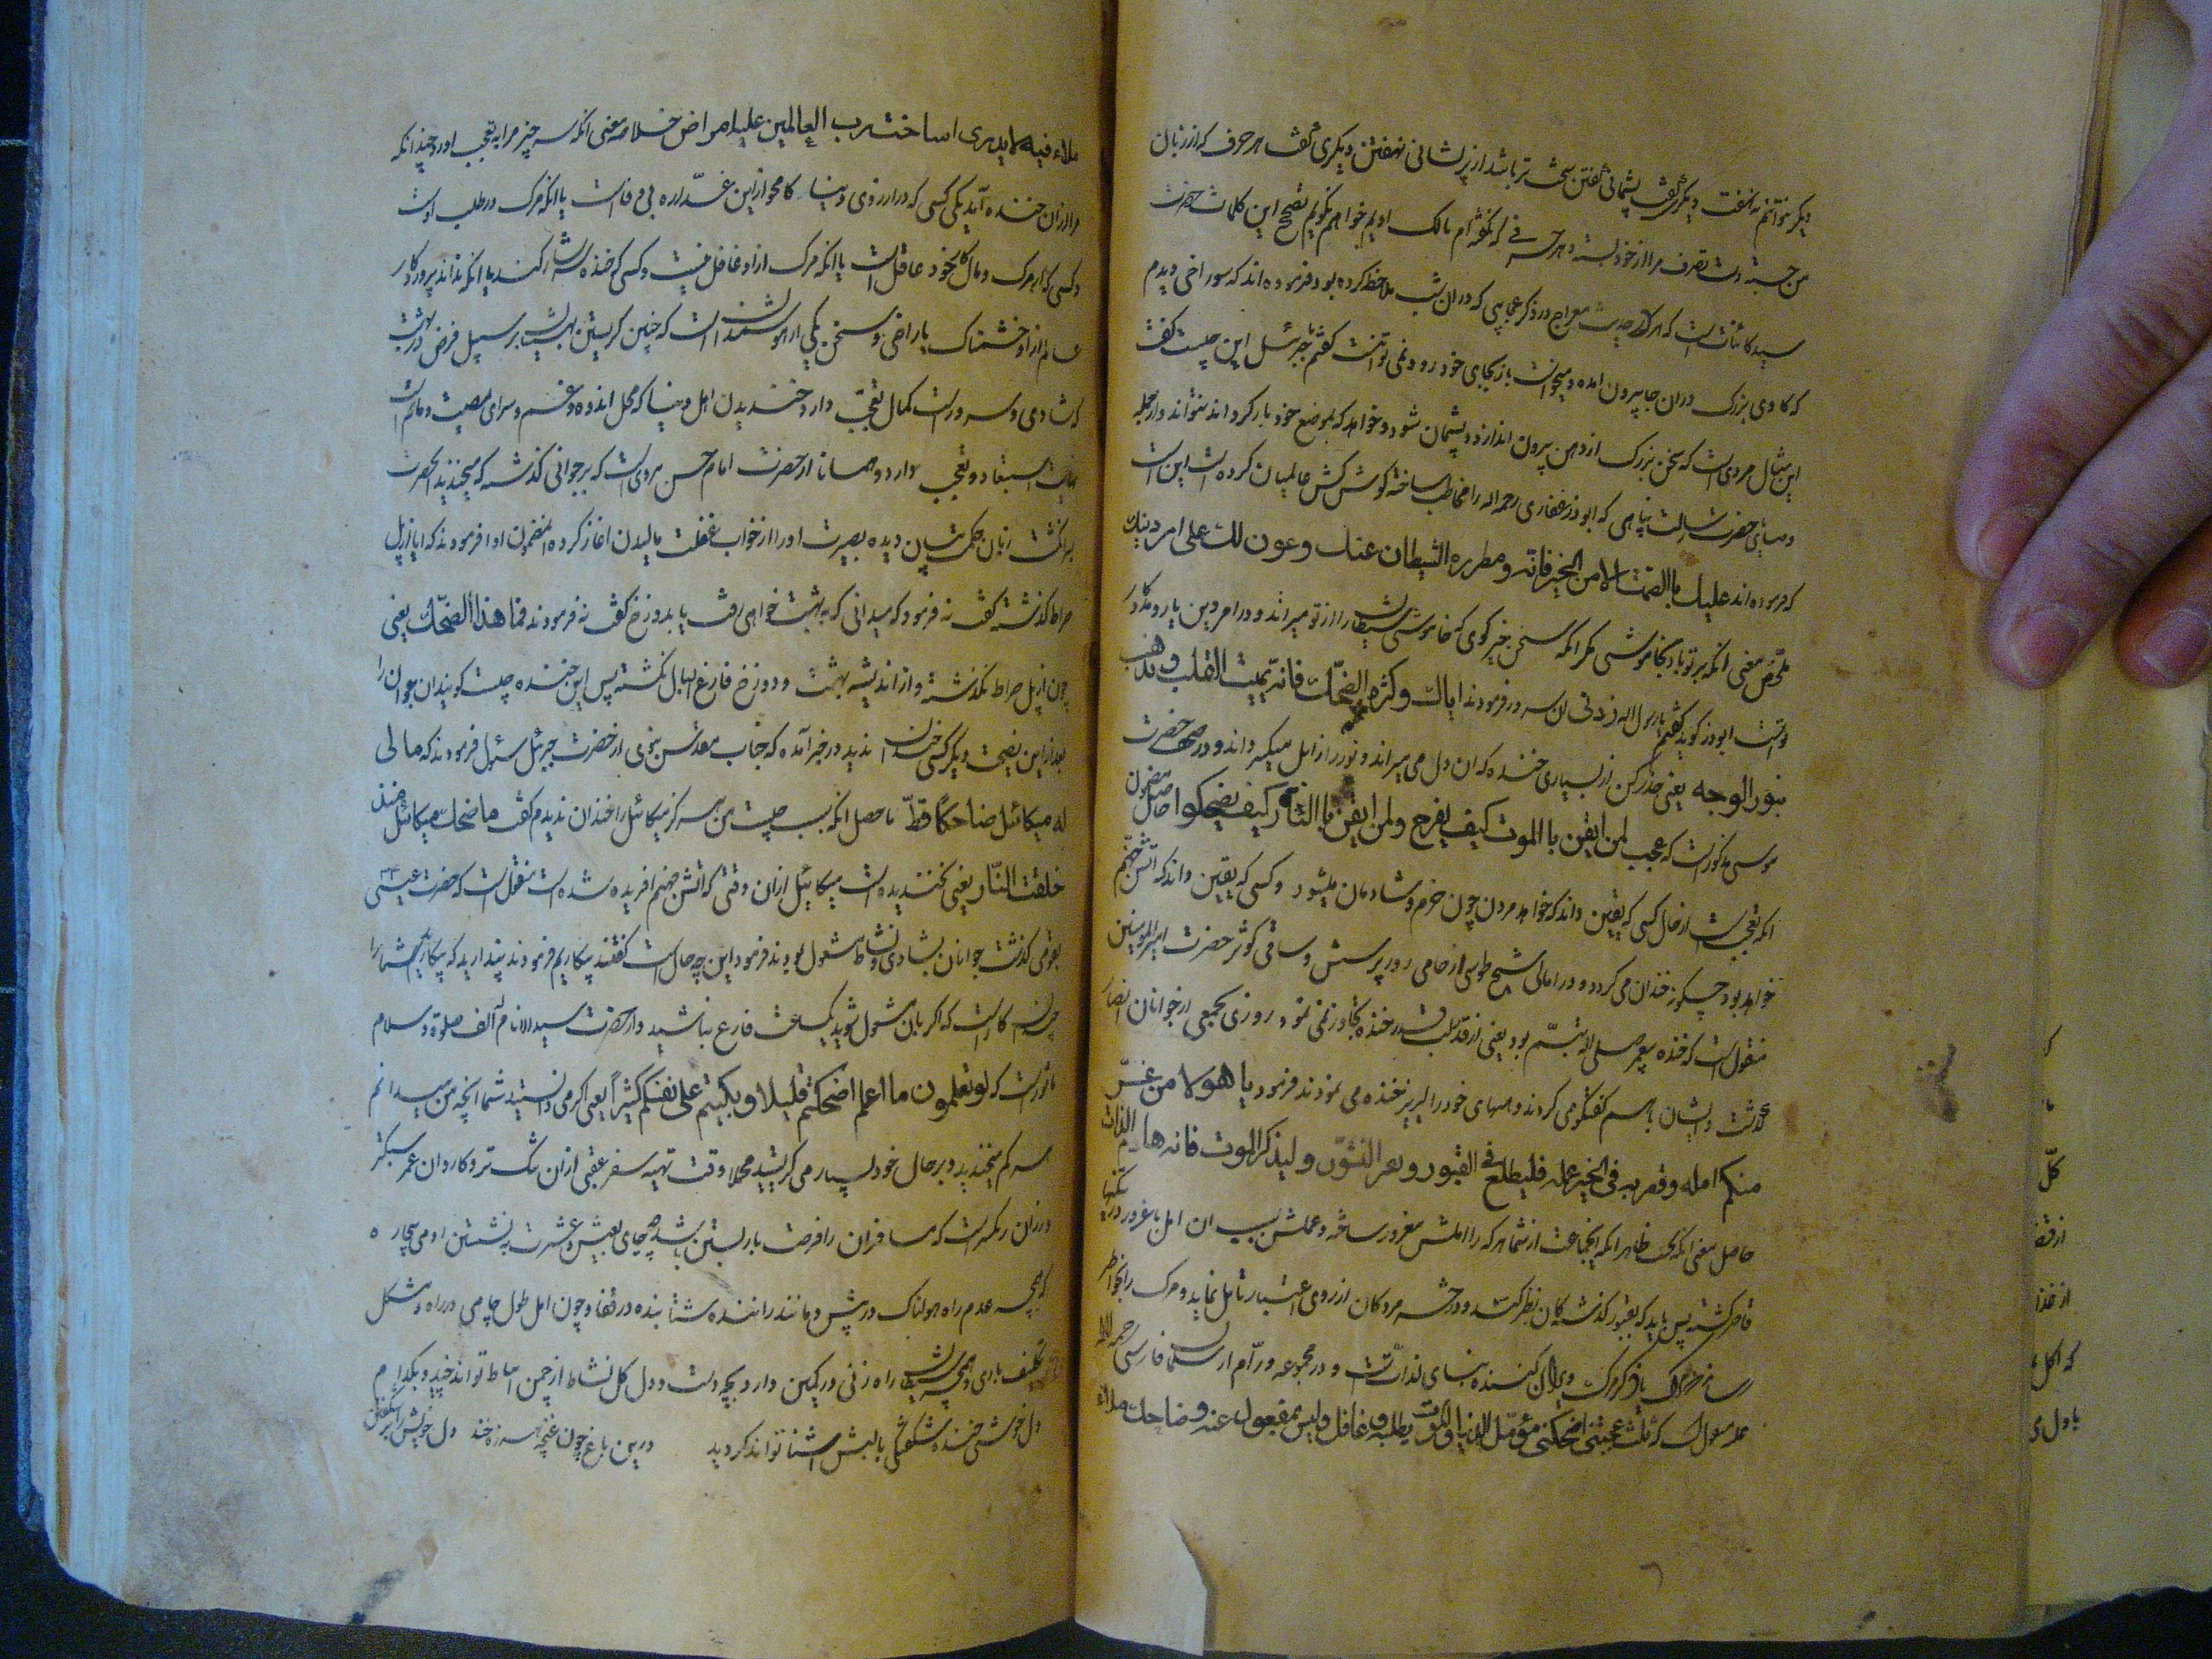 دیگر نتوانم نهفت دیگری گفت پشیمانی گفتن سخت تر باشد از پشیمانی نهفتن دیگری گفت هر حرف که از زبان
من جسته دست تصرف مرا از خود بسته و هر چه نگفته ام مالک اویم خواهم نگویم تصحیح این کلمات حضرت
سید کائنات است که در حدیث معراج در ذکر عجایبی که در آن شب ملاحظه کرده بود فرموده اند که سوراخی دیدم
که گاوی بزرگ از آن جا بیرون آمده و میخواست باز بجای خود رود نمی توانست گفتم جبرئیل این چیست گفت
این مثال مردی است که سخن بزرگ از دهن بیرون اندازد و پشیمان شود و خواهد که بموضع خود باز گرداند نتواند و از جمله
وصایای حضرت رسالت پناهی که ابوذر غفاری رحمه الله را مخاطب ساخته گوش کش عالمیان کرده است این است
که فرموده اند علیک بالصمت الا من الخیر فانه مطردة الشیطان عنک و عون لک علی امر دینک
ملخص معنی آنکه بر تو باد بخاموشی مگر آنکه سخن خیر گوی که خاموشی شیطان را از تو میراند و در امر دین یار و مددکار
تست ابوذر گوید گفتم یا رسول الله زدنی آن سرور فرمودند ایاک و کثرة الضحک فانه یمیت القلب و یذهب
بنور الوجه یعنی حذر کن از بسیاری خنده که آن دل می میراند و نور را زایل میگرداند و در صحف حضرت
موسی مذکور است که عجب لمن ایقن بالموت کیف یفرح و لمن ایقن بالنار کیف یضحک حاصل مضمون
آنکه تعجب است از حال کسی که یقین داند که خواهد مردن چون خرم و شادمان میشود و کسی که یقین داند که آتش جهنم
خواهد بود چگونه خندان می گردد و در امالی شیخ طوسی از حامی روز پرسش و ساقی کوثر حضرت امیر المومنین
منقول است که خنده پیغمبر صلی الله تبسم بود یعنی از قدر تبسم خنده تجاوز نمی نمود روزی بجمعی از جوانان انصار
گذشت و ایشان با هم گفتگو می کردند و دهنهای خود را لبریز خنده می نمودند فرمود یا هولا من غر
منکم امله و قصر به فی الخیر عمله فلیطلع فی القبور و یعتبر النشور و لیذکر الموت فانه هادم اللذات
حاصل معنی آنکه ای جماعت از شما هر که را املش مغرور ساخته و عملش بسبب آن امل با غرور در نیکیها
قاصر گشته پس باید که بقبور گذشتگان نظر کند و در حشر مردگان از روی اعتبار تامل نماید و مرگ را بخاطر
رساند که مرگ ویران کننده بنای لذات است و در مجموعه ورام از سلمان فارسی رحمه الله
منقول است که ثلث عجبتنی اضحکتنی مؤمل الدنیا و الموت یطلبه و غافل و لیس بمغفول عنه و ضاحک ملاء
ملاء فیه لا یدری اساخط رب العالمین علیه ام راض خلاصه معنی آنکه سه چیز مرا به تعجب آورد چندانکه
مرا از آن خنده آید یکی کسی که در آرزوی دنیا کامجو از این غداره بی وفا است با آنکه مرگ در طلب اوست
و کسی که از مرگ و مآل کار خود غافل است با آنکه مرگ از او غافل نیست و کسی که خنده سرشار کند با آنکه نداند پروردگار
عالم از او خشمناک یا راضی و سخن یکی از هوشمندان است که چنین گریستن بهشتیان بر سبیل فرض در بهشت
که شادی و سرور است کمال تعجب دارد خندیدن اهل دنیا که محل اندوه و غم و سرای مصیبت و ماتم است
نهایت استبعاد و تعجب دارد و همانا از حضرت امام حسن مرویست که بر جوانی گذشت که میخندید آن حضرت
بانگشت زبان حکمت بیان دیده بصیرت او را از خواب غفلت مالیدن آغاز کرده باین مضمون ادا فرمودند که آیا از پل
صراط گذشته گفت نه فرمود که میدانی که به بهشت خواهی رفت یا بدوزخ گفت نه فرمودند فما هذا الضحک یعنی
چون از پل صراط نگذشته و از اندیشه بهشت و دوزخ فارغ البال نگشته پس این خنده چیست گویند آن جوان را
بعد از این نصیحت دیگر کسی خندان ندید در خبر آمده که جناب مقدس نبوی از حضرت جبرئیل سؤال فرمودند که مالی
لم ار میکائیل ضاحکا قط ما حصل آنکه سبب چیست من هرگز میکائیل را خندان ندیدم گفت ما ضحک میکائیل منذ
خلقت النار یعنی نخندیده است میکائیل از آن وقتی که آتش جهنم آفریده شده است منقول است که حضرت عیسی
بقومی گذشت جوانان بشادی و نشاط مشغول بودند فرمود این چه حال است گفتند بیکاریم فرمودند پندارید که بیکارید شما را
چندان کار است که اگر بآن مشغول شوید یک ساعت فارغ نباشید و از حضرت سید الانام الف صلوة و سلام
ماثور است که لو تعلمون ما اعلم لضحکتم قلیلا و لبکیتم علی انفسکم کثیرا یعنی اگر می دانستید شما آنچه من میدانم
هر آینه کم میخندید و بر حال خود بسیار می گریستید مجملا وقت تهیه سفر عقبی از آن تنگ تر و کاروان عمر سبکتر
در آن رهگذر است که مسافران را فرصت بار بستن باشد چه جای بعیش و عشرت نشستن آدمی بیچاره
که همچو عدم راه هولناک در پیش و مانند راننده شتابنده در قفا و چون امل طول جامی در راه مشکل
تکلیف باری و همچو شیطان راه زنی در کمین دارد بچه دست و دل گل نشاط از چمن انبساط تواند چید و بکدام
دل خوشی خنده شکفتگی با لبش آشنا تواند گردید درین باغ چون غنچه هرزه خند دل خویش را بر شگفتن